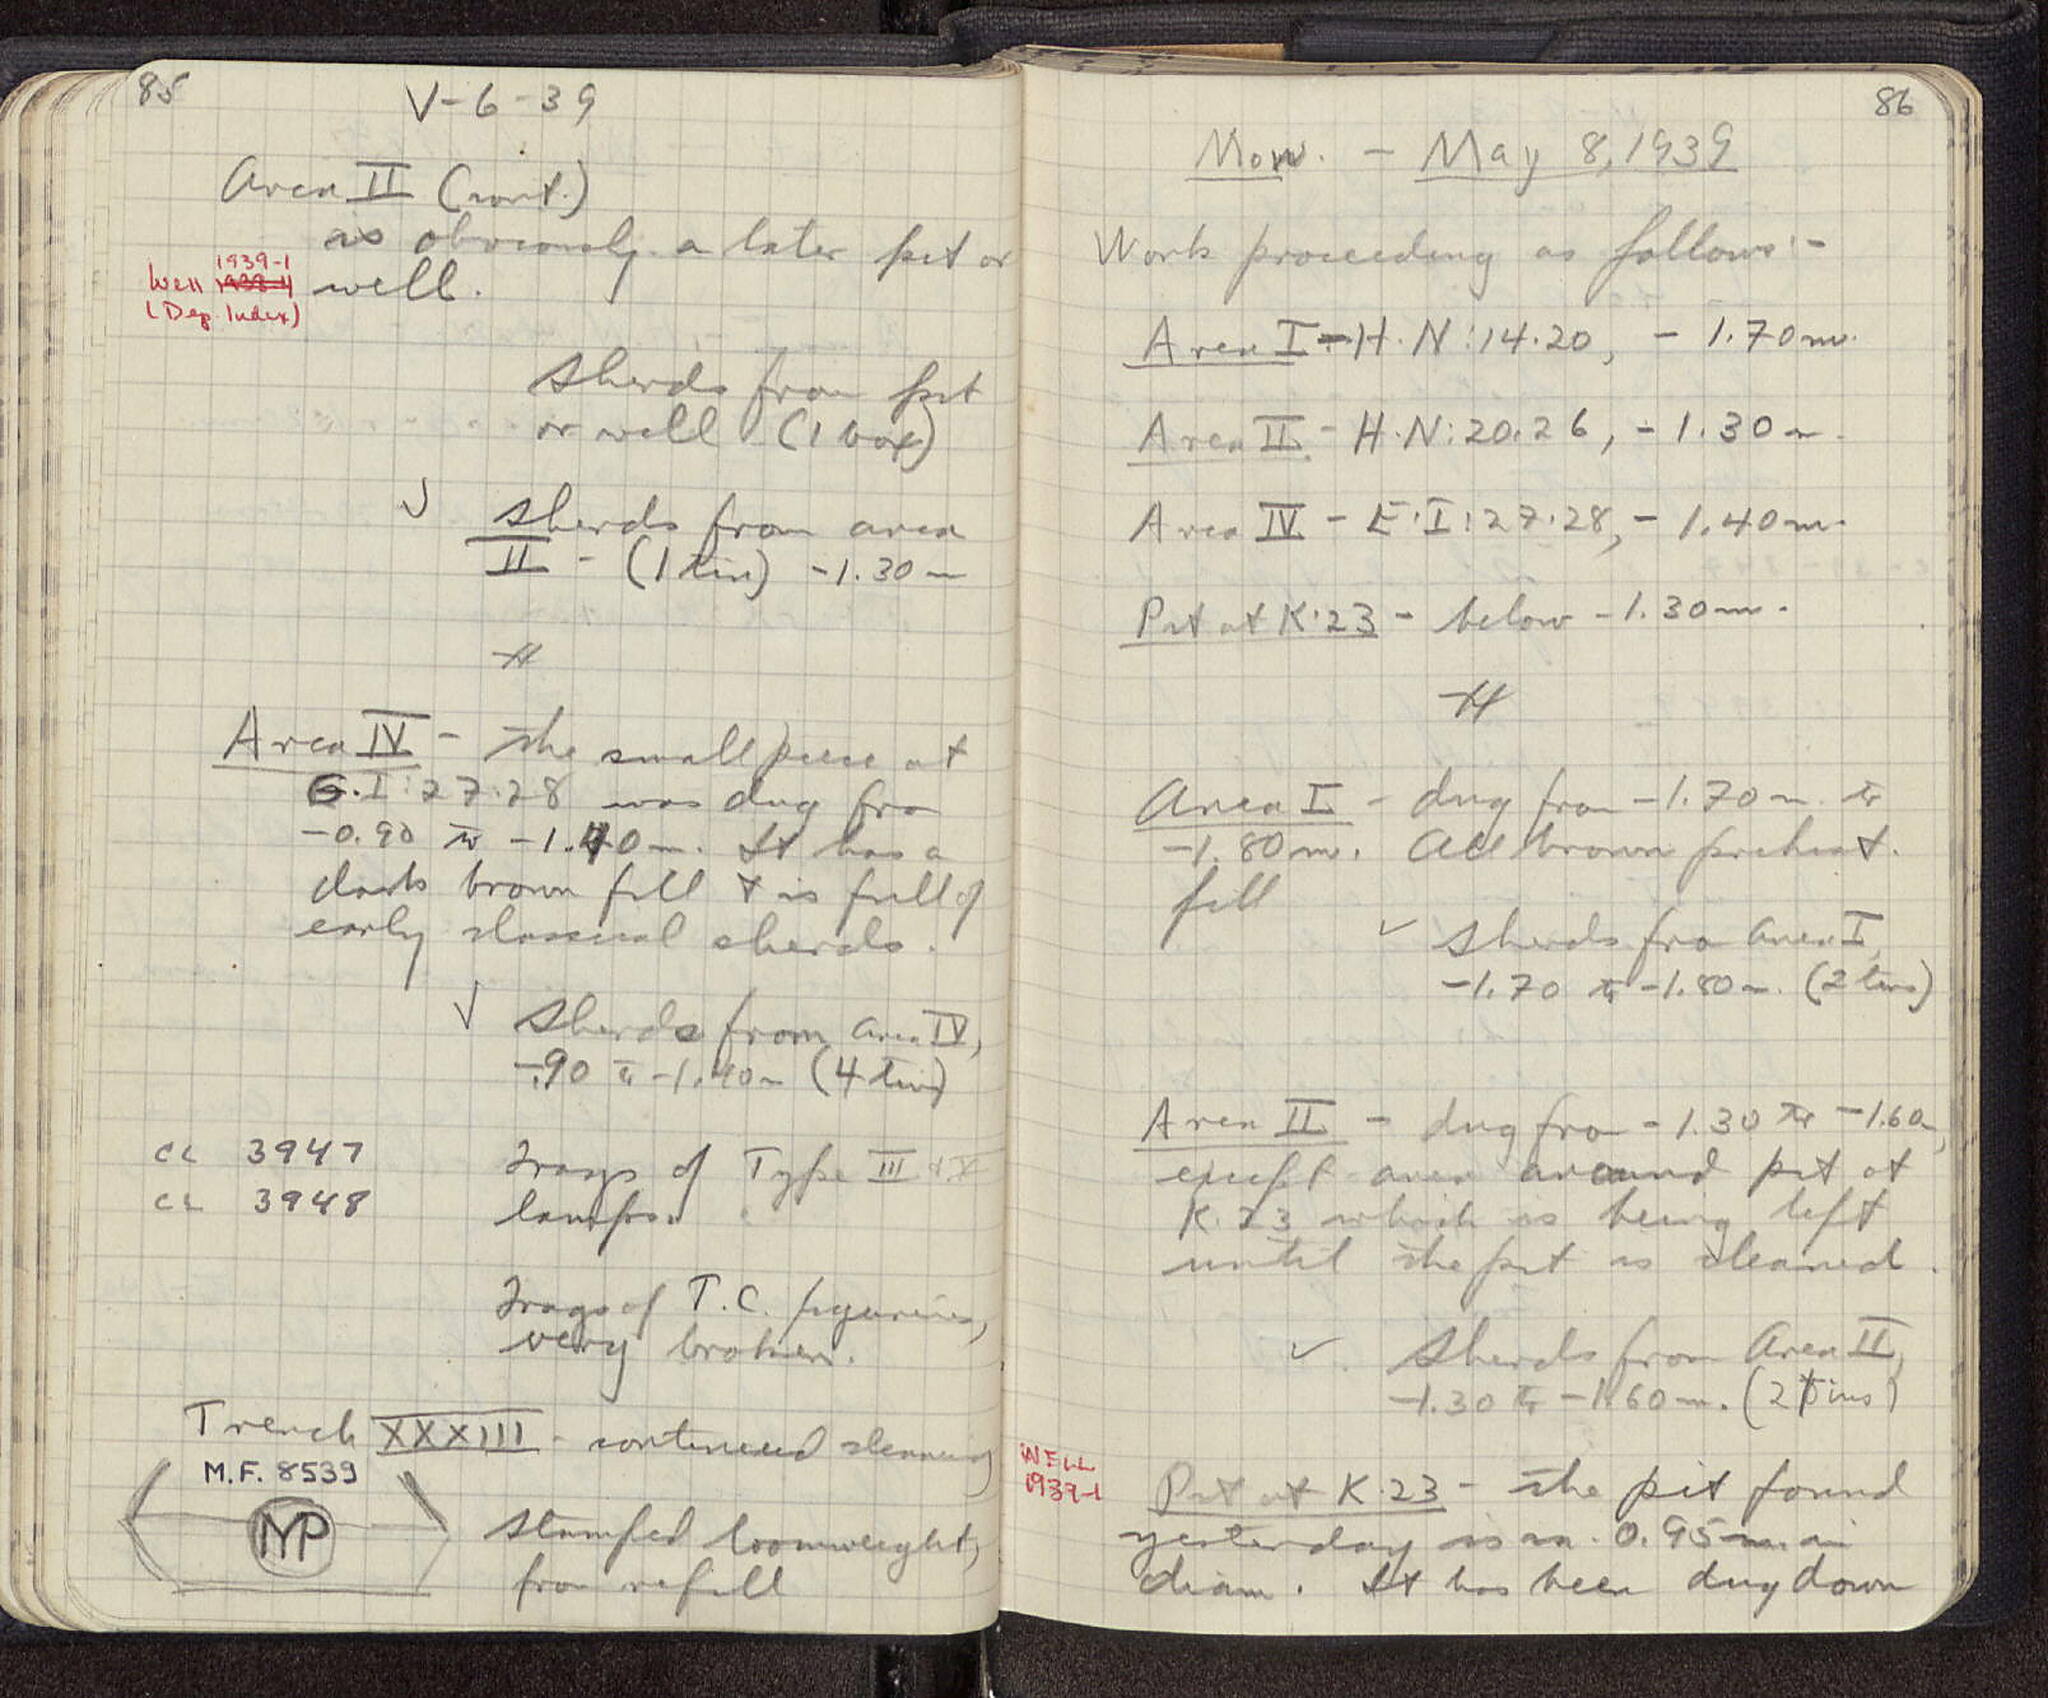 85
V-6-39
Area II (cont.)
is obviously a later pit or
well.
1939-1
Well 1938-4
(Dep. Index)
Sherds from pit
or well (1 box)
✓ Sherds from area
II - (1 tin) -1.30m
Area IV - The small piece at
G.I:27.28 was dug from
-0.90 to -1.40m. It has a
dark brown fill & is full of
early classical sherds.
✓ Sherds from Area IV,
-.90 to -1.40m (4 tins)
CL 3947
CL 3948
Frags of Type III & V
lamps.
Frags of T.C. figurines,
very broken.
Trench XXXIII - continued cleaning
M.F. 8539
Stamped loomweight,
from refill
86
Mon. - May 8, 1939
Work proceeding as follows:-
Area I - H.N:14.20, - 1.70m.
Area II - H.N:20.26, - 1.30m.
Area IV - E.I:27.28, - 1.40m.
Pit at K.23 - below -1.30m.
Area I - dug from -1.70m. to
-1.80m. All brown prehist.
fill
✓ Sherds from Area I,
-1.70 to -1.80m. (2 tins)
Area II - dug from -1.30 to -1.60m,
except area around pit at
K.23 which is being left
until the pit is cleaned.
✓ Sherds from Area II,
-1.30 to -1.60m. (2 tins)
WELL
1939-1
Pit at K.23 - The pit found
yesterday is ca. 0.95m. in
diam. It has been dug down